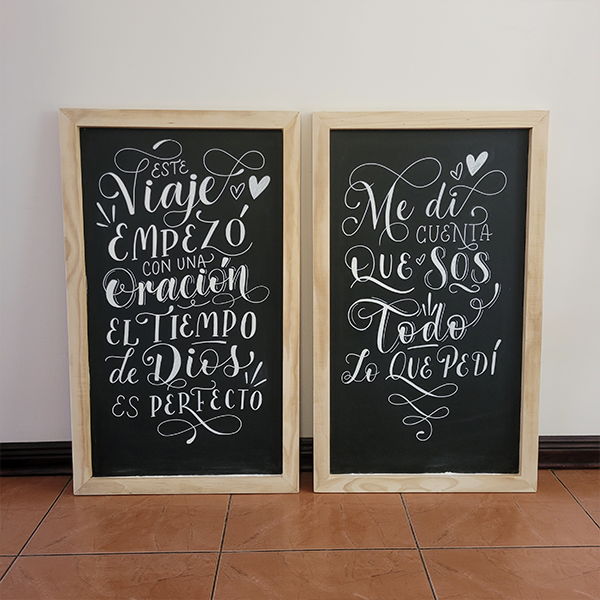 ESTE
Viaje
EMPEZÓ
CON UNA
Oración
EL TIEMPO
de Dios
ES PERFECTO
Me di
CUENTA
QUE SOS
Todo
Lo QUE PEDÍ